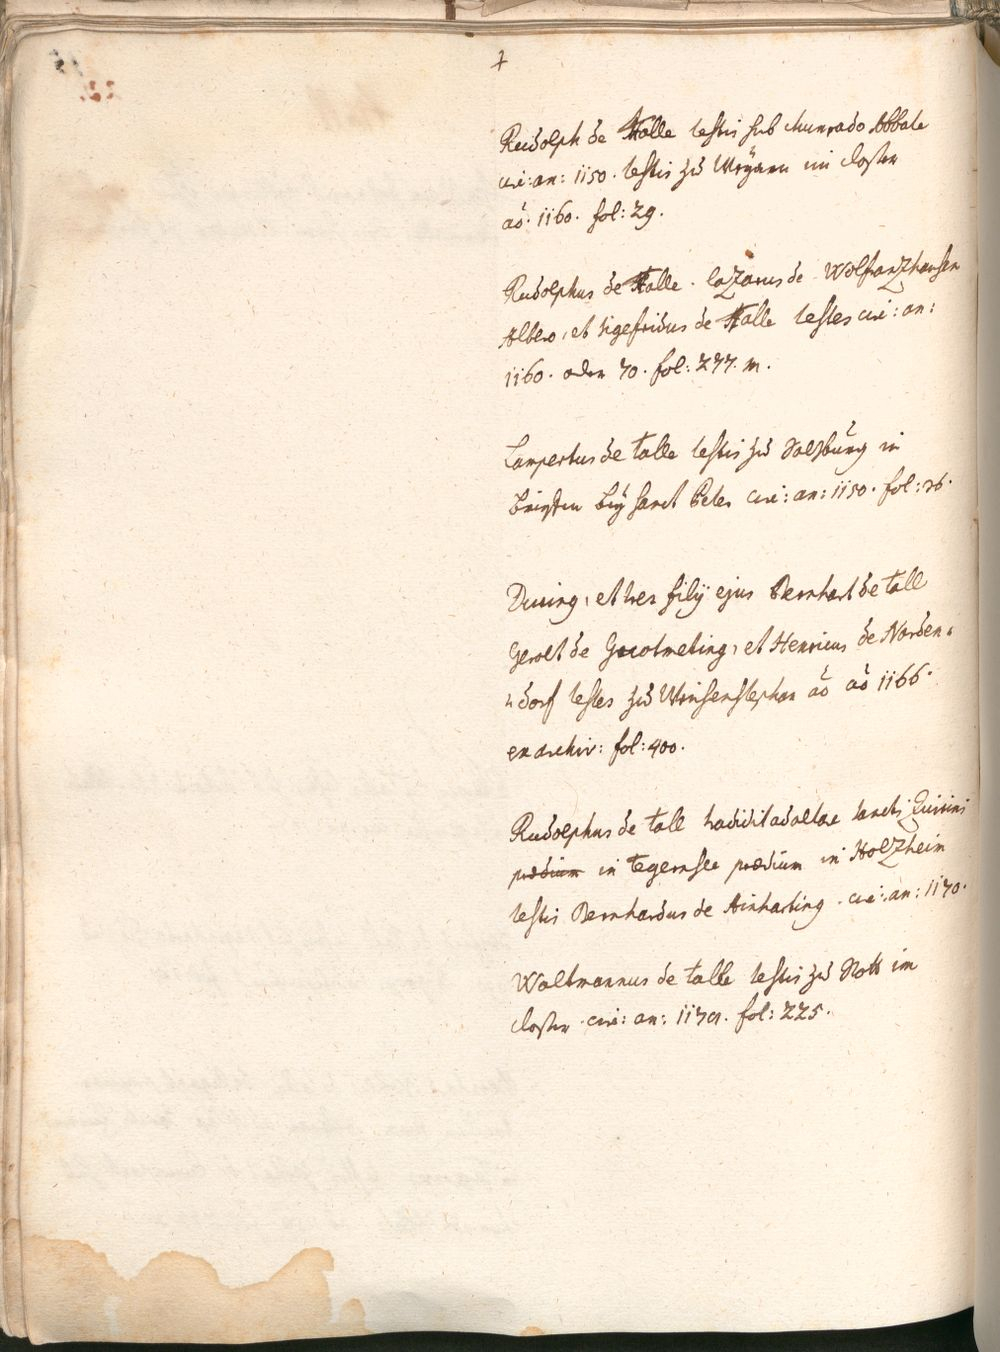 Rudolph de Talle testis sub Chunrado Abbate
circ: an: 1150. testis zu Weyarn im closter
ao. 1160. fol: 29.
Rudolphus de Talle. laZarus de Wolfratzhausen
Albero, et Sigefridus de Talle testes circ: an:
1160. oder 70. fol: 277. m.
Lampertus de talle testis zu Salzburg in
bey sanct Peter circ: an: 1150. fol: 26.
et tres filij ejus Bernhart de tall
Gerolt de et Henricus de Norden=
=dorf testes zu ao ao 1166.
ex archiv: fol: 400.
Rudolphus de tall tradidit ad altare sancti Quirini
praedium in tegernsee praedium in HolZheim
testis Bernhardus de Ainharting. circ: an: 1170.
Waltmannus de talle testis zu Rott im
closter. circ: an: 1170. fol: 225.